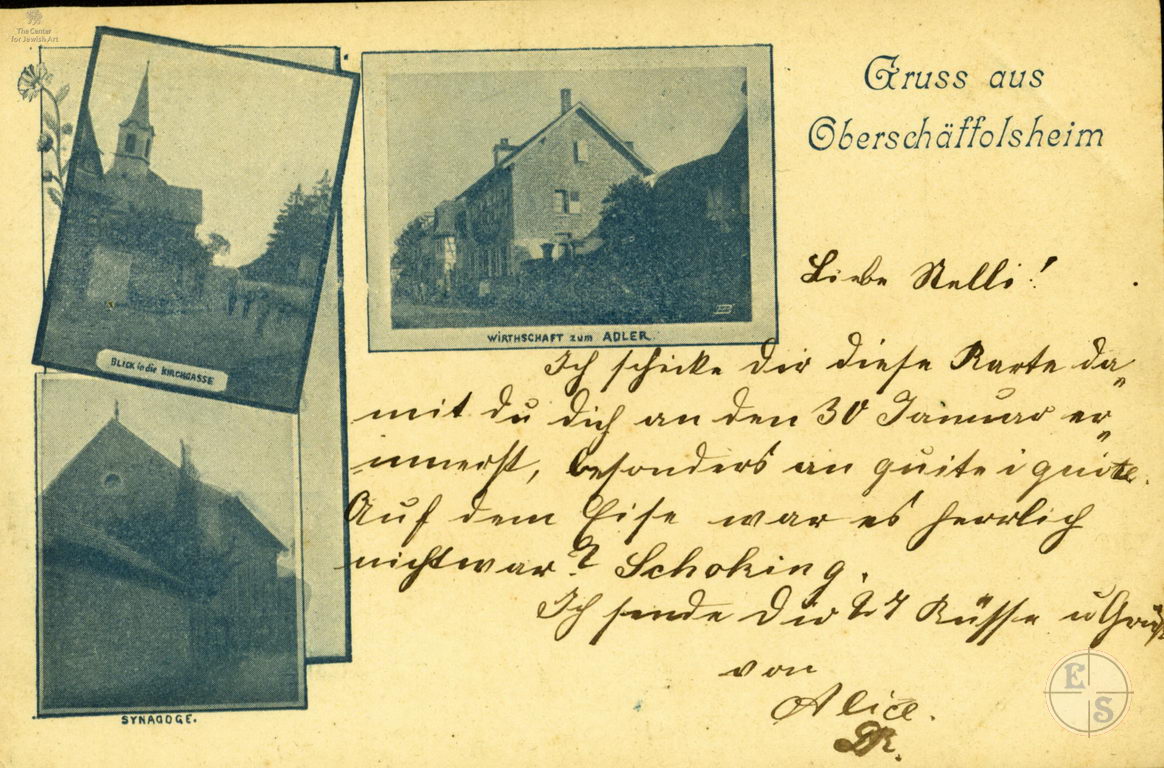 The Center
for Jewish Art
Gruss aus
Oberschäffolsheim
WIRTHSCHAFT zum ADLER.
BLICK in die KIRCHGASSE
SYNAGOGE.
Liebe Nelli!
Ich schicke dir diese Karte da„
mit du dich an den 30 Januar er„
innerst, besonders an
Auf dem Eise war es herrlich
nichtwar? Schoking.
Ich sende Dir Küsse u Grüße
von
Alice.
E
S